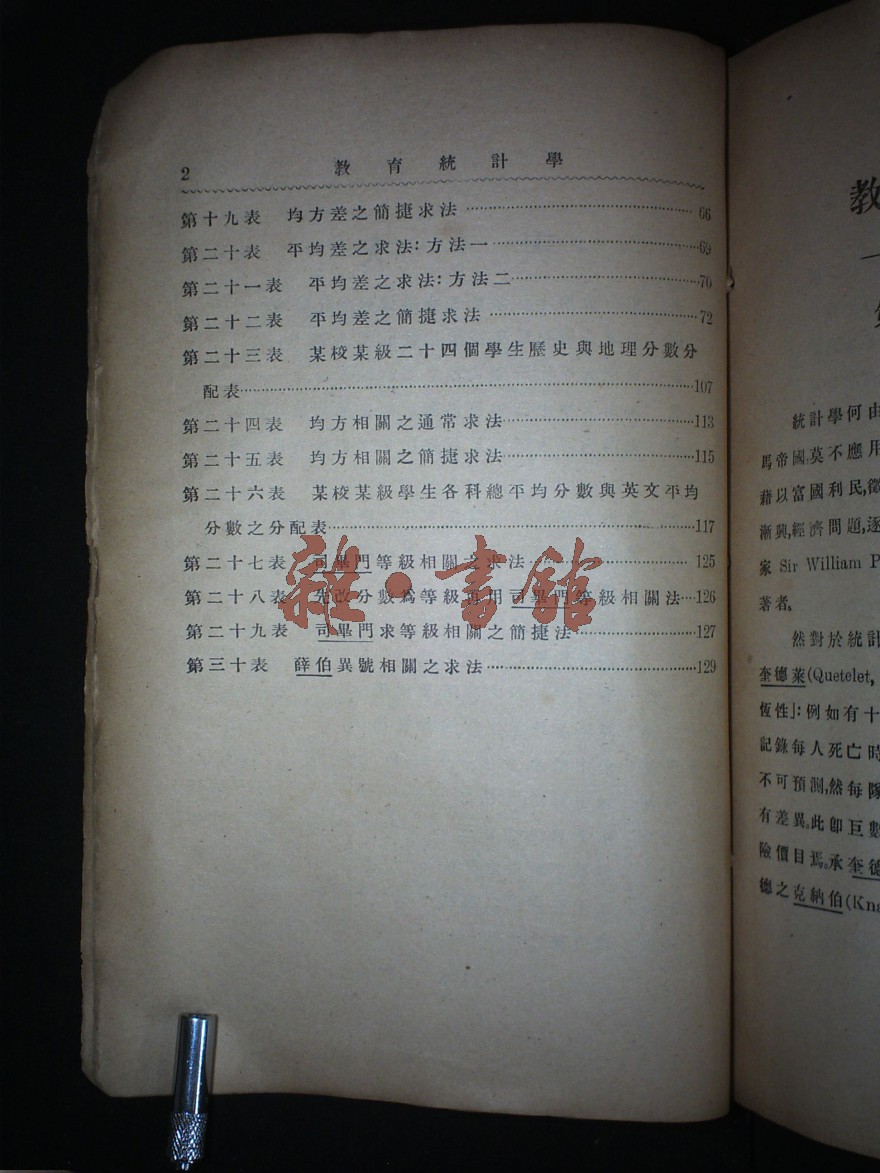 2 教育統計學
第十九表 均方差之簡捷求法……66
第二十表 平均差之求法:方法一……69
第二十一表 平均差之求法:方法二……70
第二十二表 平均差之簡捷求法……72
第二十三表 某校某級二十四個學生歷史與地理分數分
配表……107
第二十四表 均方相關之通常求法……113
第二十五表 均方相關之簡捷求法……115
第二十六表 某校某級學生各科總平均分數與英文平均
分數之分配表……117
第二十七表 司畢門等級相關之求法……125
第二十八表 先改分數爲等級再用司畢門等級相關法…126
第二十九表 司畢門求等級相關之簡捷法……127
第三十表 薛伯異號相關之求法……129
雜·書館
教
統計學何由
馬帝國,莫不應用
藉以富國利民,徵
漸興,經濟問題,逐
家 Sir William P
著者。
然對於統計
奎德萊(Quetelet,
恆性」:例如有十
記錄每人死亡時
不可預測,然每隊
有差異。此卽巨數
險價目焉。承奎德
德之克納伯(Kna